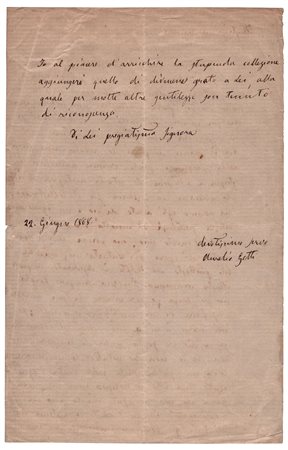 Io al piacere d'arricchire la stupenda collezione
aggiungerò quello di divenirne grato a Lei alla
quale per molte altre gentilezze son tenuto
di riconoscenza
Di Lei pregiatissima Signora
22. Giugno 1868
devotissimo servo
Aurelio